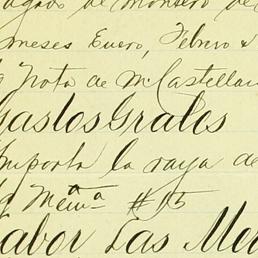 de
meses Enero, Febrero &
Nota de M. Castellan
Gastos Grales
Importa la raya de
Mema #15
Labor Las Med